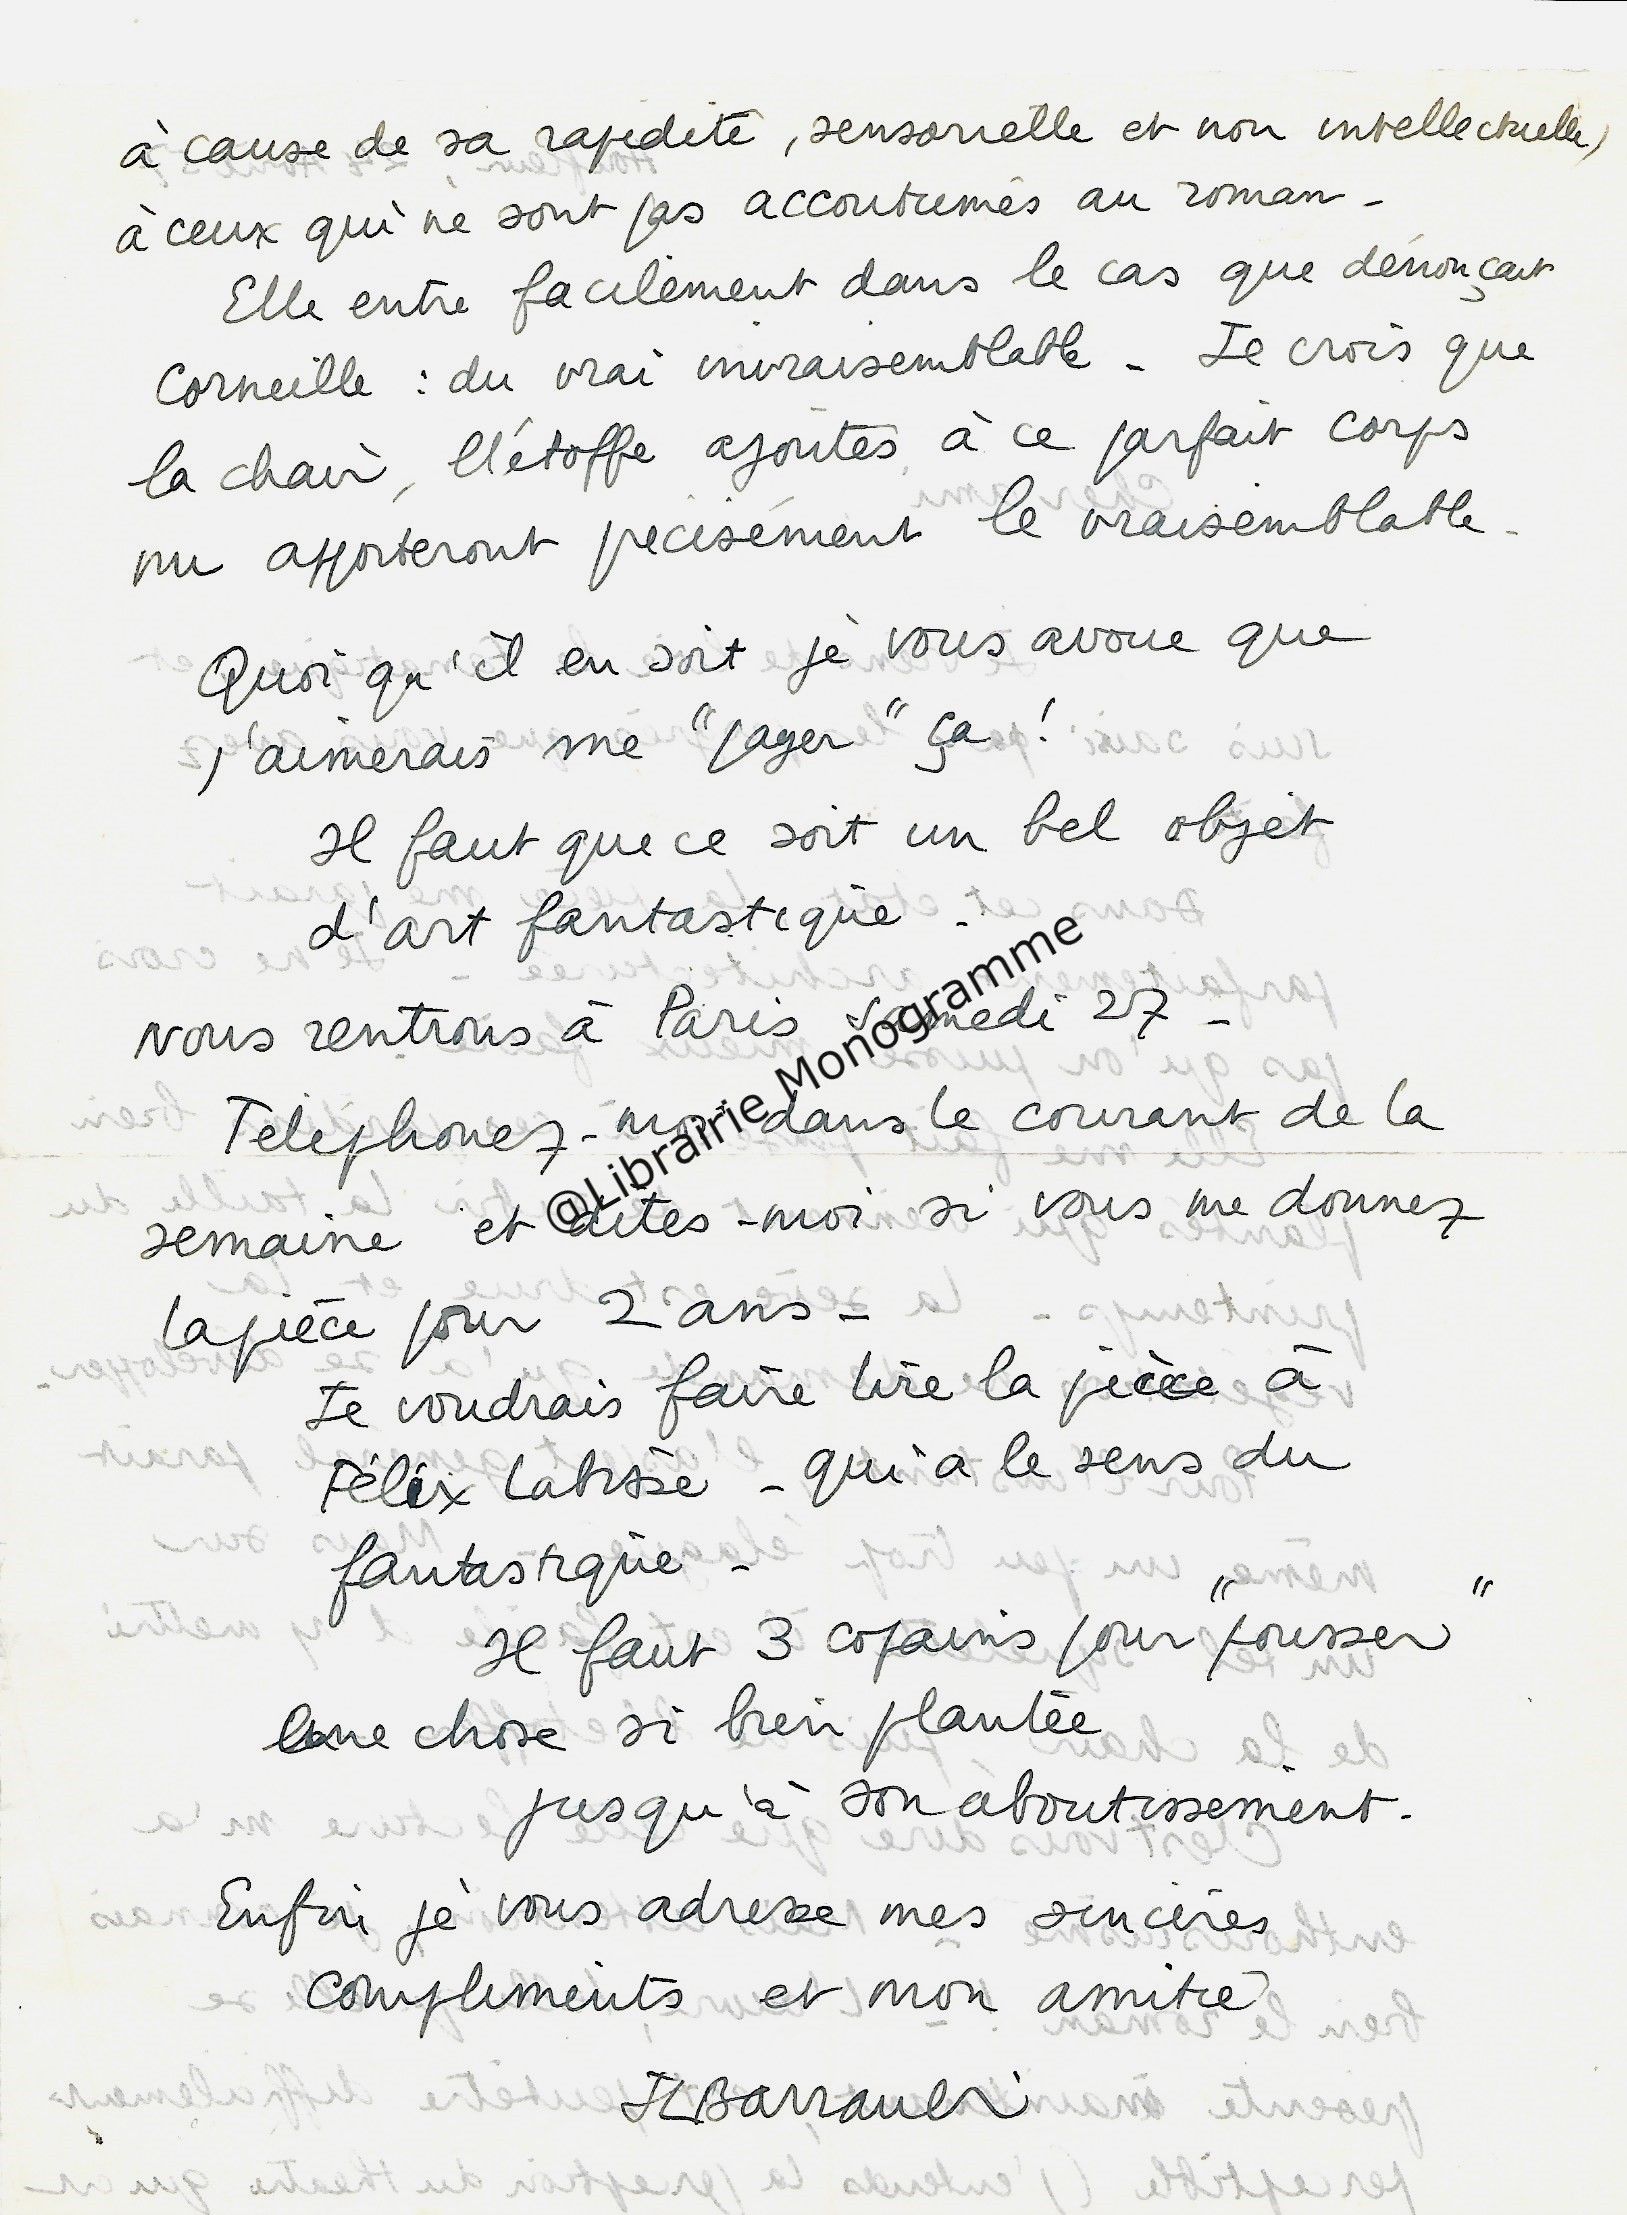 à cause de sa rapidité, sensorielle et non intellectuelle)
à ceux qui ne sont pas accoutumés au roman -
Elle entre facilement dans le cas que dénonçait
Corneille : du vrai invraisemblable - Je crois que
la chair, l'étoffe ajoutés à ce parfait corps
nu apporteront précisément le vraisemblable -
Quoi qu'il en soit je vous avoue que
j'aimerais me "payer" ça !
Il faut que ce soit un bel objet
d'art fantastique -
Nous rentrons à Paris samedi 27 -
Téléphonez-moi dans le courant de la
semaine et dites-moi si vous me donnez
la pièce pour 2 ans -
Je voudrais faire lire la pièce à
Félix Labisse - qui a le sens du
fantastique -
Il faut 3 copains pour "pousser"
une chose si bien plantée
jusqu'à son aboutissement -
Enfin je vous adresse mes sincères
compliments et mon amitié
JLBarrault
@Librairie Monogramme